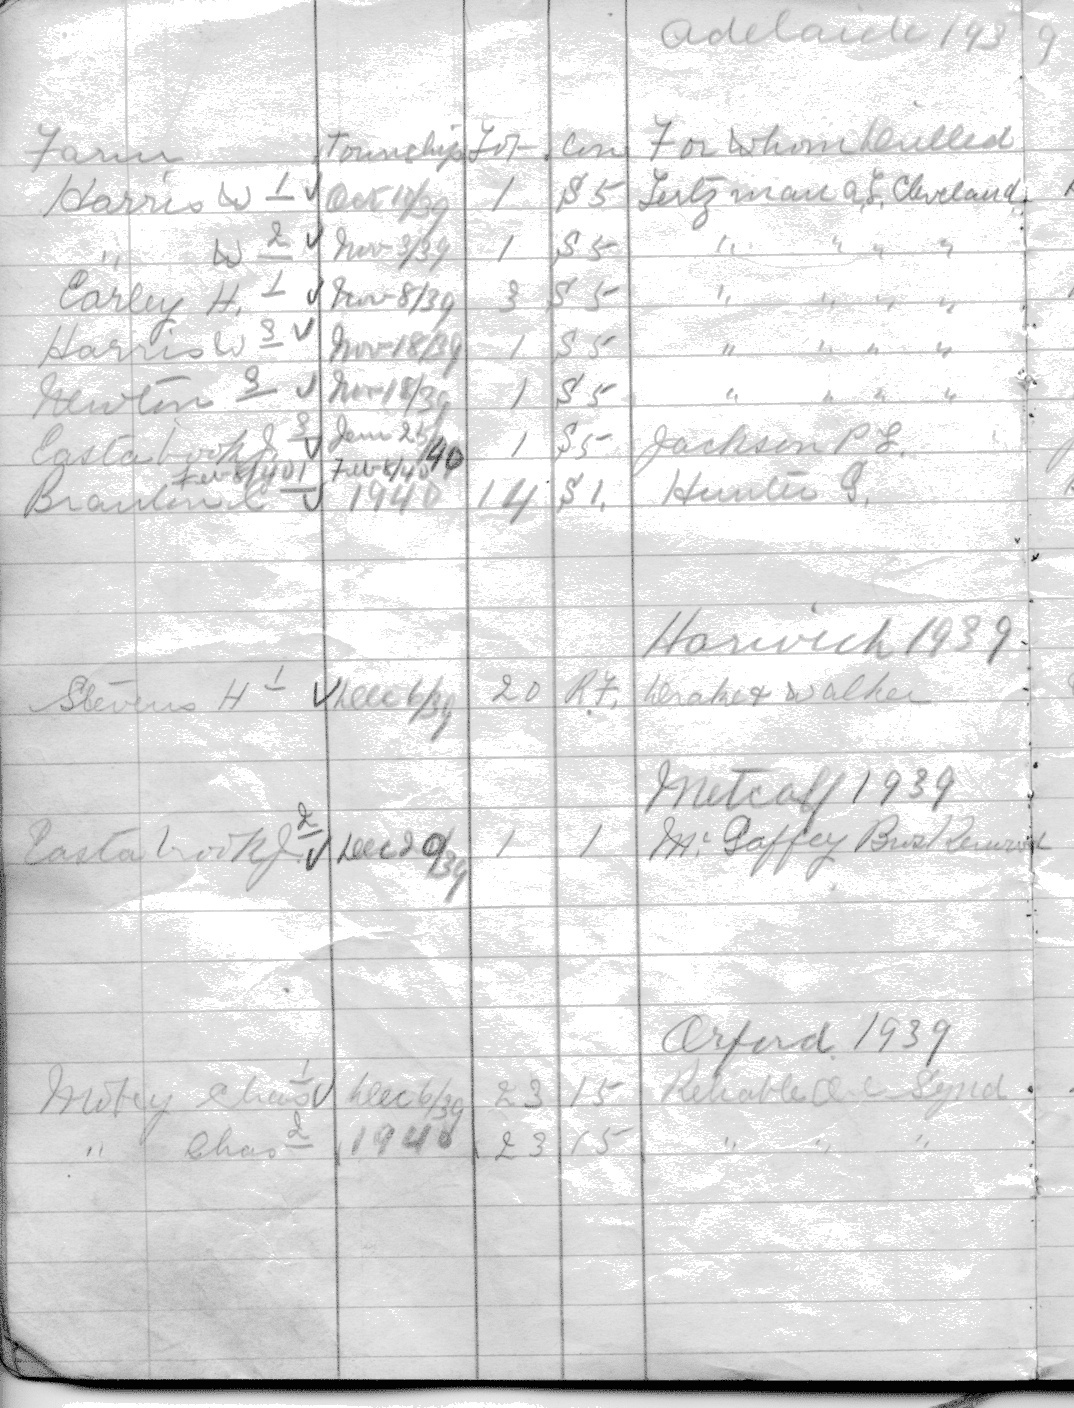 Adelaide 1939
Farm Township Lot Con For Whom Drilled
Harris W 1 ✓ Oct 10/39 1 S 5 Lertzman A.L. Cleveland
" W 2 ✓ Nov 3/39 1 S 5 " " " "
Carley H. 1 ✓ Nov 8/39 3 S 5 " " " "
Harris W 3 ✓ Nov 18/39 1 S 5 " " " "
Newton 3 ✓ Nov 18/39 1 S 5 " " " "
Eastabrook J. 3 ✓ Jan 25/40 1 S 5 Jackson P.L.
Feb 8/40 1 Feb 8/40
Branton C ✓ 1940 14 S 1. Hunter G.
Harwich 1939
Stevens H 1 ✓ Dec 6/39 20 R.F. Drake & Walker
Metcalf 1939
Eastabrook J. 2 ✓ Dec 20/39 1 1 Mc Gaffey Bros
Orford 1939
Chas 1 ✓ Dec 6/39 23 15 Reliable Synd
" Chas 2 1940 23 15 " " "